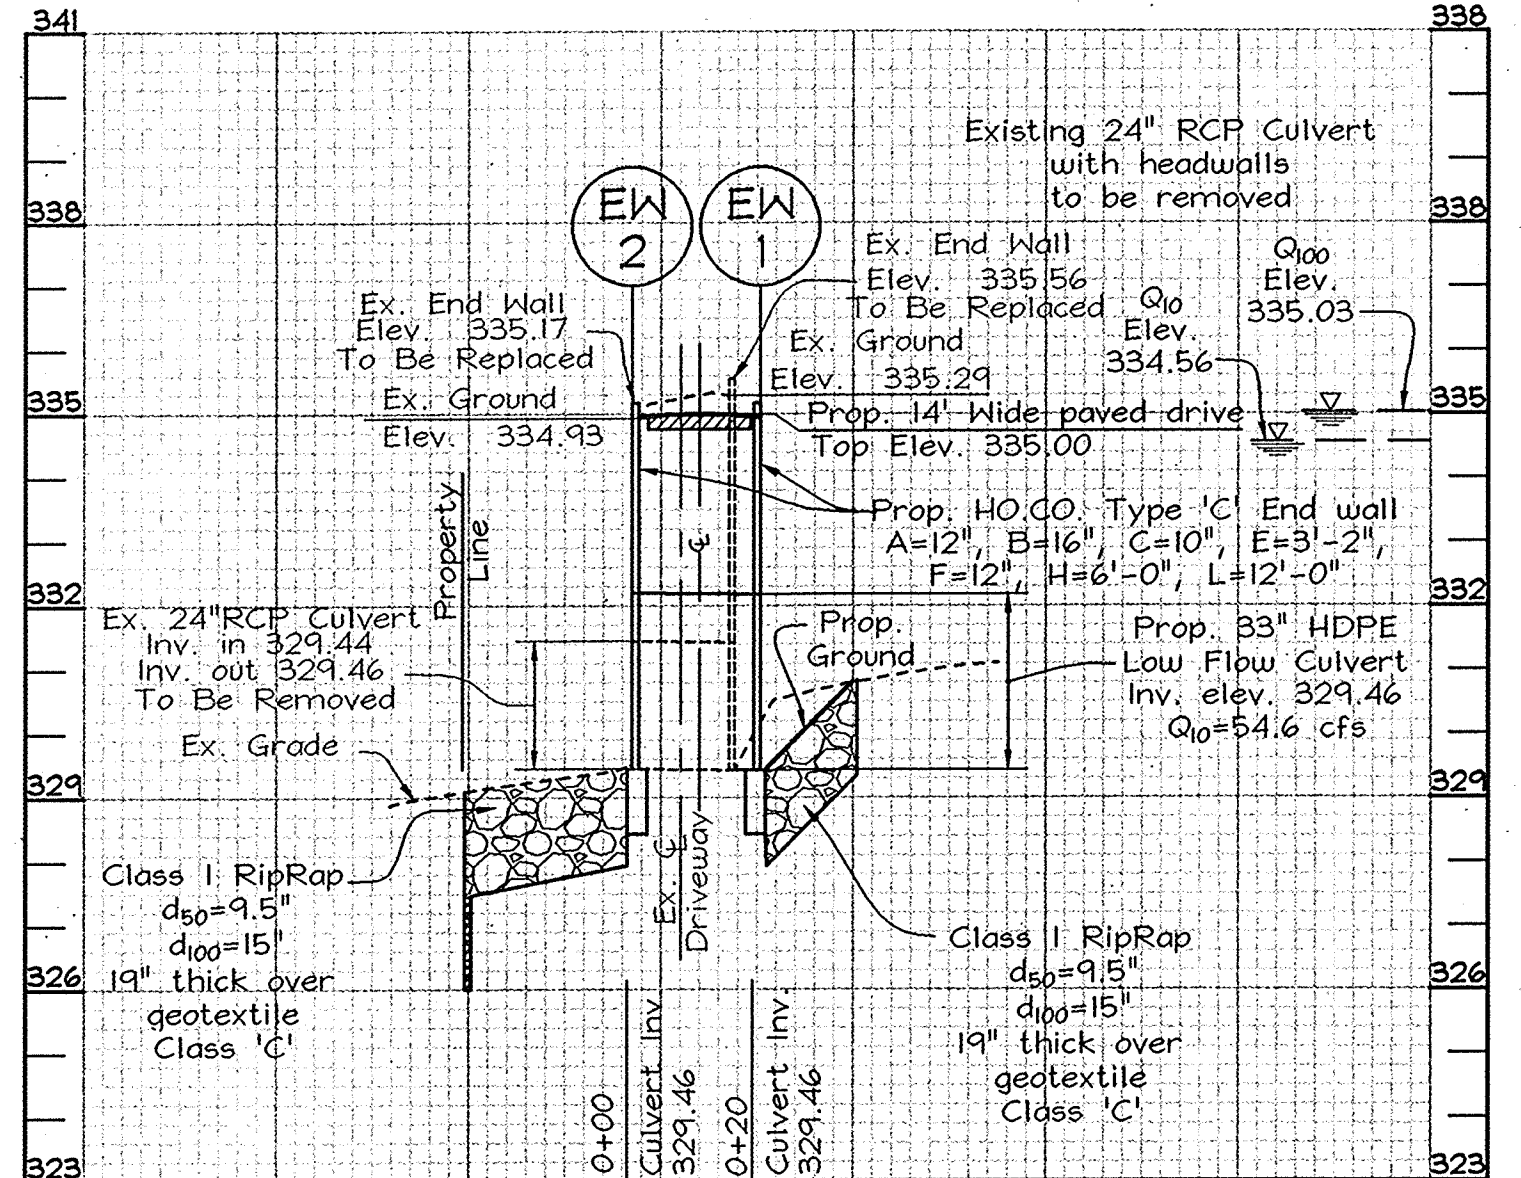 341
338
Existing 24" RCP Culvert
with headwalls
to be removed
338
338
EW
2
EW
1
Ex. End Wall
Elev. 335.56
To Be Replaced
Q100
Elev.
335.03
Q10
Elev.
334.56
Ex. End Wall
Elev. 335.17
To Be Replaced
Ex. Ground
Elev. 335.29
Ex. Ground
Elev. 334.93
335
335
Prop. 14' Wide paved drive
Top Elev. 335.00
Property
Line
℄
Prop. HO.CO. Type 'C' End wall
A=12", B=16", C=10", E=3'-2",
F=12", H=6'-0", L=12'-0"
332
332
Ex. 24"RCP Culvert
Inv. in 329.44
Inv. out 329.46
To Be Removed
Prop.
Ground
Prop. 33" HDPE
Low Flow Culvert
Inv. elev. 329.46
Q10=54.6 cfs
Ex. Grade
329
329
Class I RipRap
d50=9.5"
d100=15"
19" thick over
geotextile
Class 'C'
Ex. ℄
Driveway
Class I RipRap
d50=9.5"
d100=15"
19" thick over
geotextile
Class 'C'
326
326
0+00
Culvert Inv.
329.46
0+20
Culvert Inv.
329.46
323
323